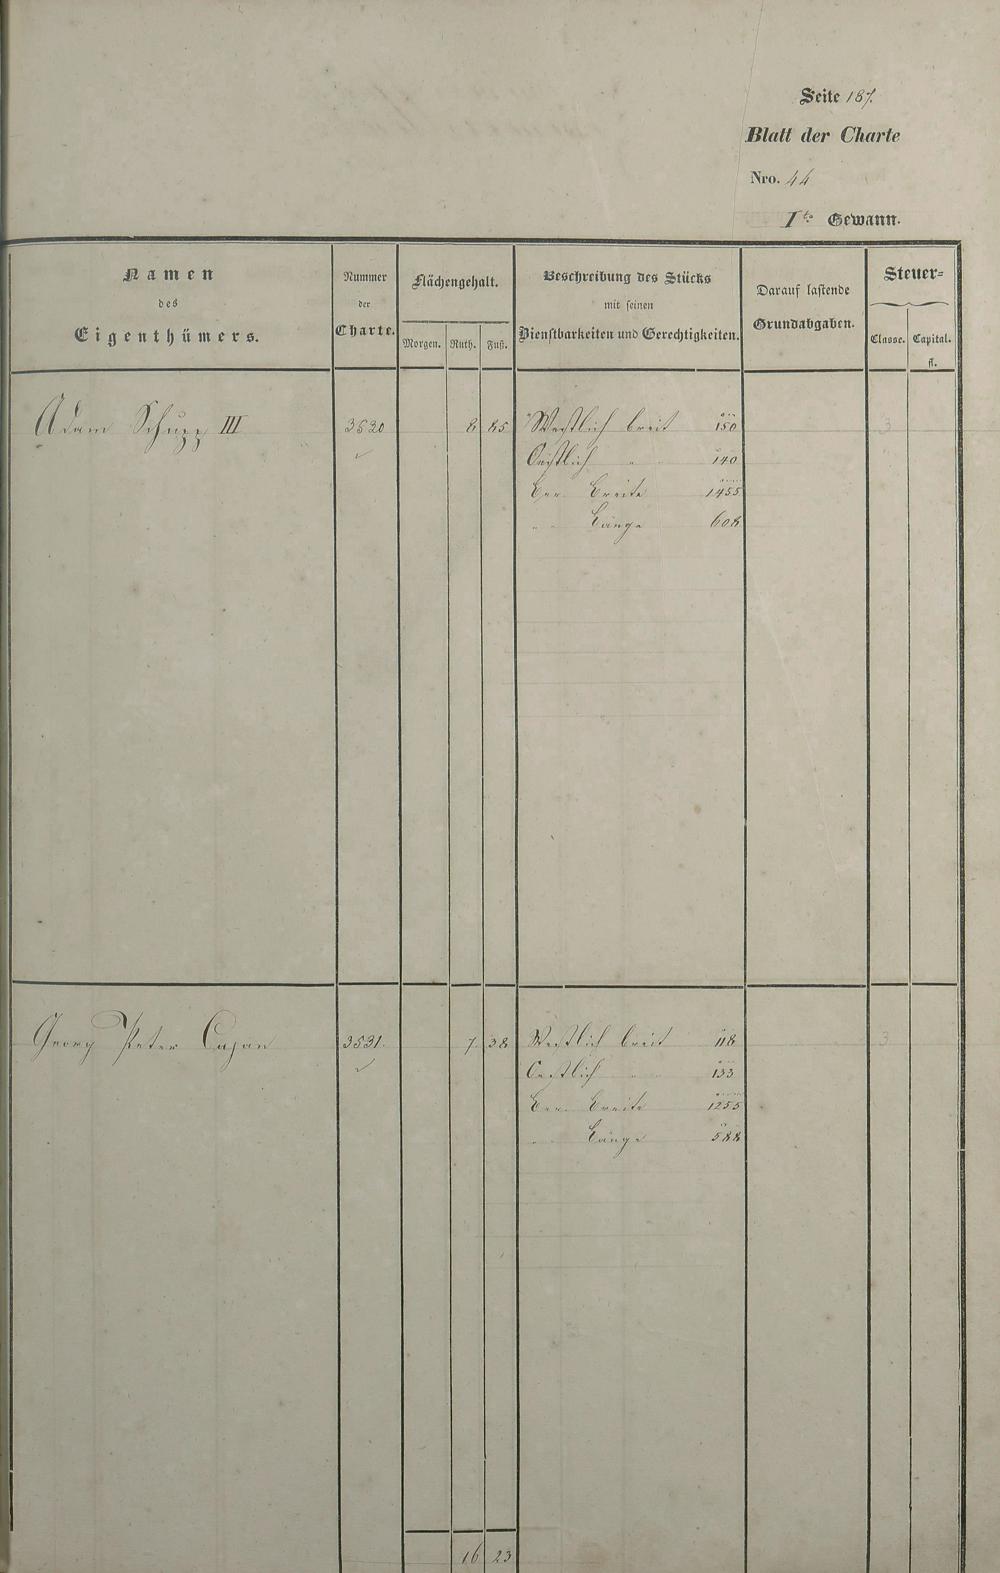 Seite 187.
Blatt der Charte
Nro. 44
Ite Gewann.
Namen
des
Eigenthümers.
Nummer
der
Charte.
Flächengehalt.
Morgen. Ruth. Fuß.
Beschreibung des Stücks
mit seinen
Dienstbarkeiten und Gerechtigkeiten.
Darauf lastende
Grundabgaben.
Steuer-
Classe. Capital.
fl.
Adam Schupp III 3530 8 85 Westlich breit 150 3
Oestlich " " 140
Ber. Breite 1455
" " Länge 608
Georg Peter Cajan 3531. 7 38 Westlich breit 118 3
Oestlich " " 133
Ber. Breite 1255
" " Länge 588
16 23